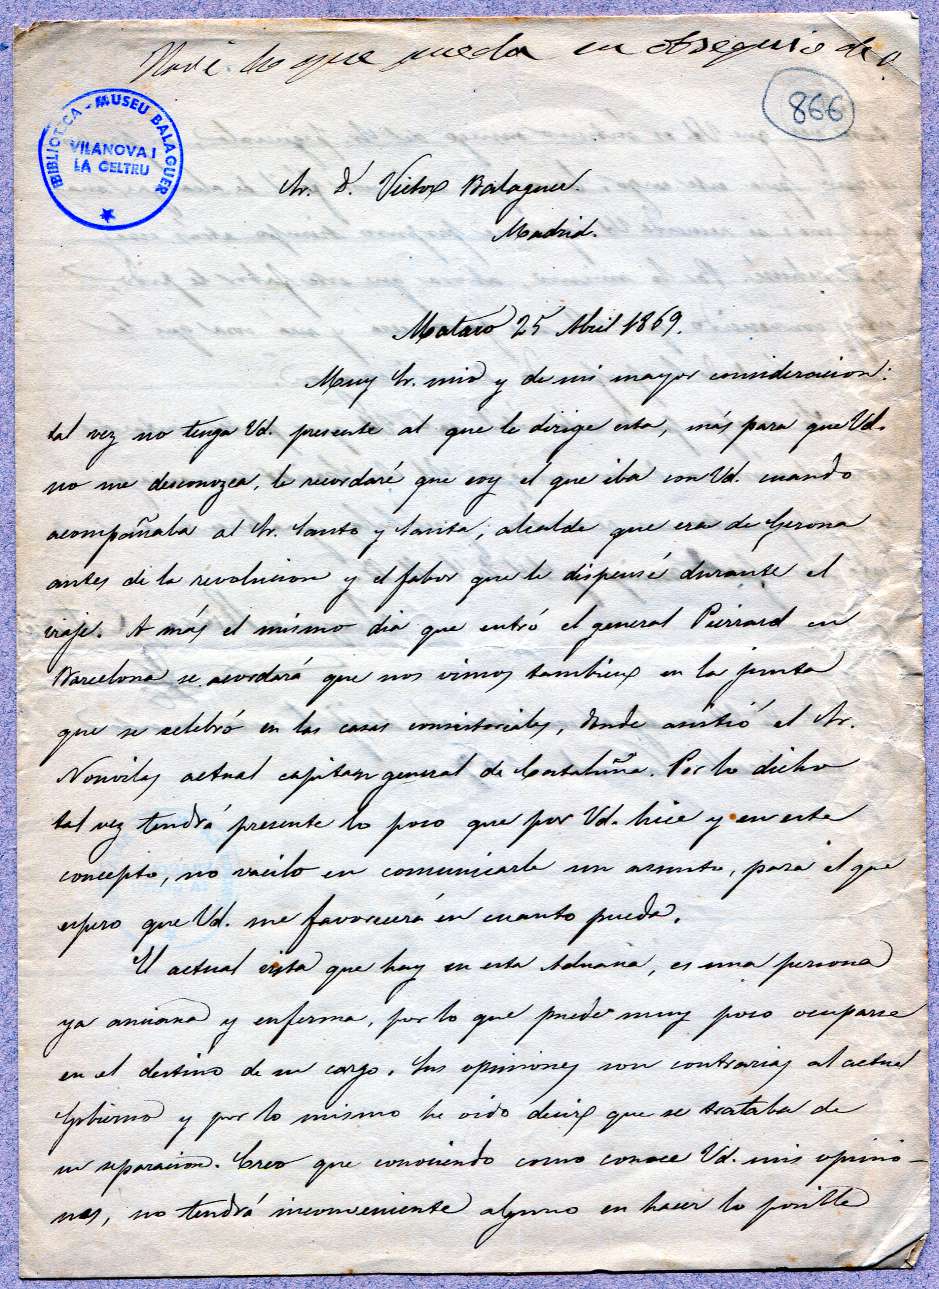 Haré lo que pueda en obsequio de
866
BIBLIOTECA - MUSEU BALAGUER
VILANOVA I
LA GELTRU
Sr. D. Victor Balaguer.
Madrid.
Mataró 25 Abril 1869.
Muy Sr. mio y de mi mayor consideracion:
tal vez no tenga Vd. presente al que le dirige esta, más para que Vd.
no me desconozca, le recordaré que soy el que iba con Vd. cuando
acompañaba al Sr. Santo y Santa, alcalde que era de Gerona
antes de la revolucion y el fabor que le dispensé durante el
viaje. A más el mismo dia que entró el general Pierrard en
Barcelona se acordará que nos vimos tambien en la junta
que se celebró en las casas consistoriales, donde asistió el Sr.
Nouvilas actual capitan general de Cataluña. Por lo dicho
tal vez tendrá presente lo poco que por Vd. hice y en este
concepto, no vacilo en comunicarle un asunto, para el que
espero que Vd. me favorecerá en cuanto pueda.
El actual vista que hay en esta Aduana, es una persona
ya anciana y enferma, por lo que puede muy poco ocuparse
en el destino de su cargo. Sus opiniones son contrarias al actual
Gobierno y por lo mismo he oido decir que se trataba de
su separacion. Creo que conociendo como conoce Vd. mis opinio-
nes, no tendrá inconveniente alguno en hacer lo posible